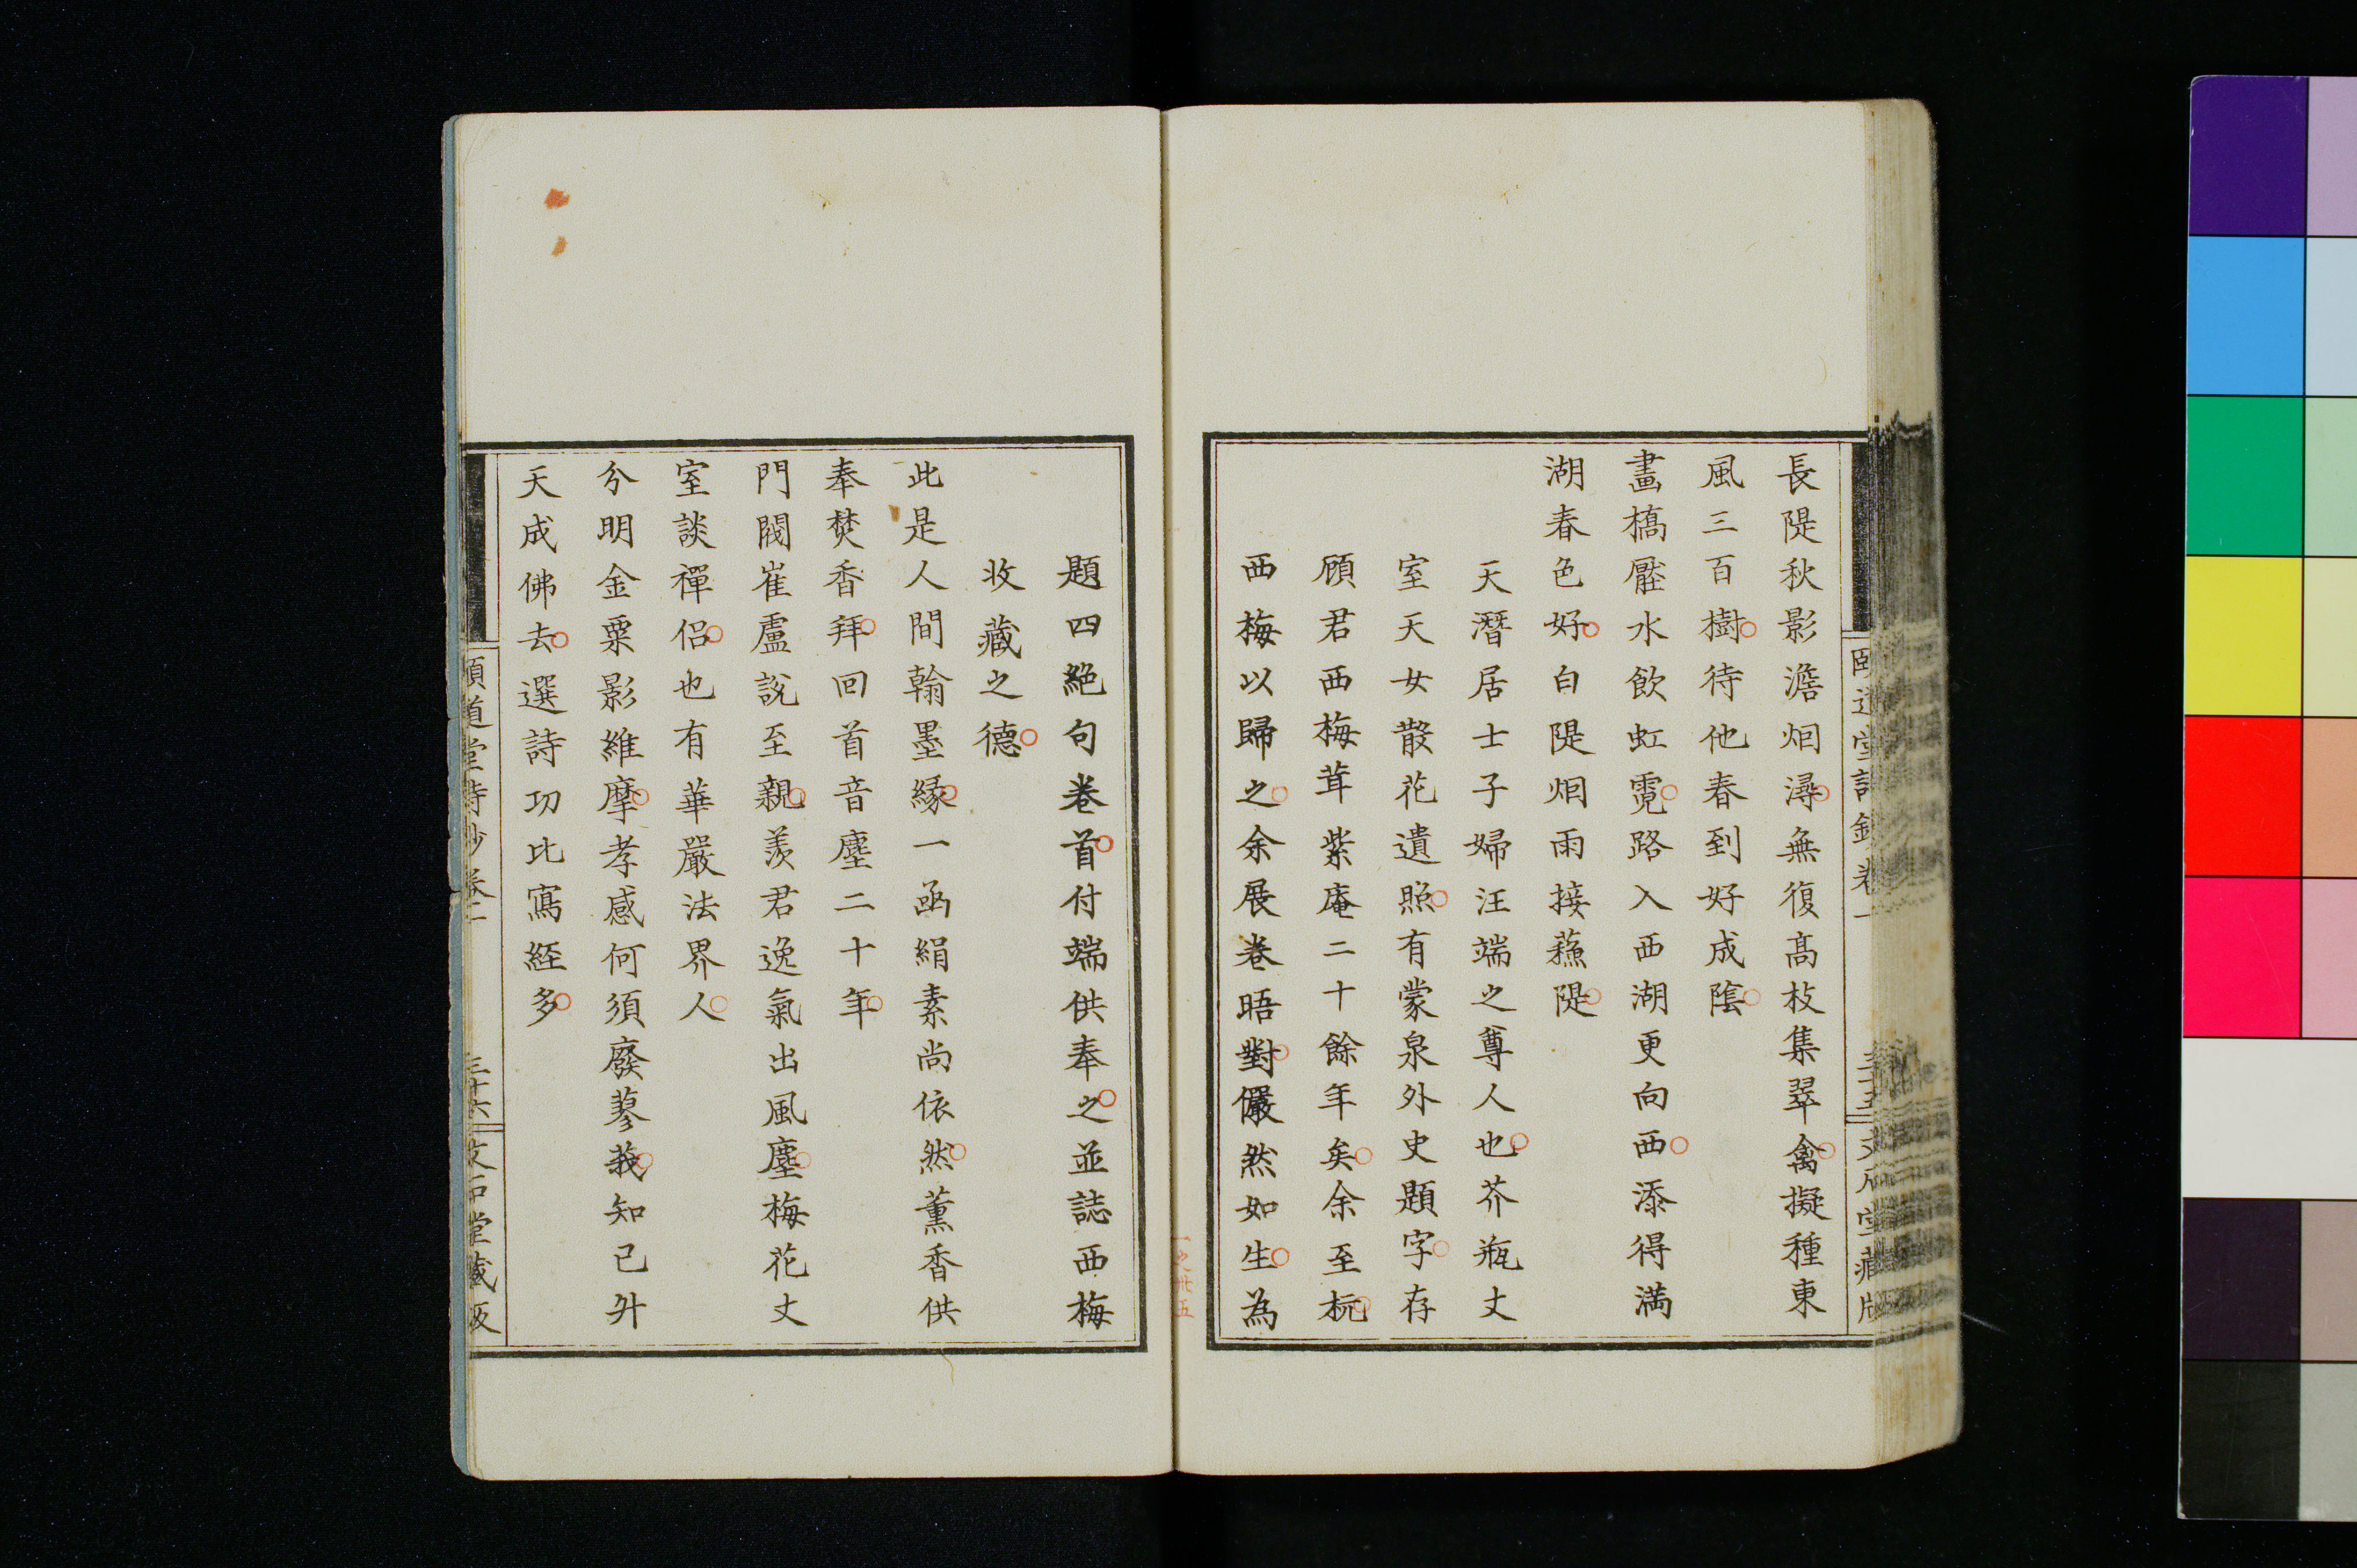 長隄秋影澹烟潯無復髙枝集翠禽擬種東
風三百樹待他春到好成陰
畫橋壓水飲虹霓路入西湖更向西添得滿
湖春色好白隄烟雨接蘓隄
天潛居士子婦汪端之尊人也芥瓶丈
室天女散花遺照有蒙泉外史題字存
頋君西梅茸紫庵二十餘年矣余至杭
西梅以歸之余展卷晤對儼然如生為
題四絕句卷首付端供奉之並誌西梅
收藏之德
此是人間翰墨緣一函絹素尚依然薰香供
奉焚香拜回首音塵二十年
門閥崔盧說至親羨君逸氣出風塵梅花丈
室談禪侶也有華嚴法界人
分明金粟影維摩孝感何須廢蓼莪知己升
天成佛去選詩功比寫經多
頤道堂詩鈔卷二
三十六
文石堂藏板
一之卅五